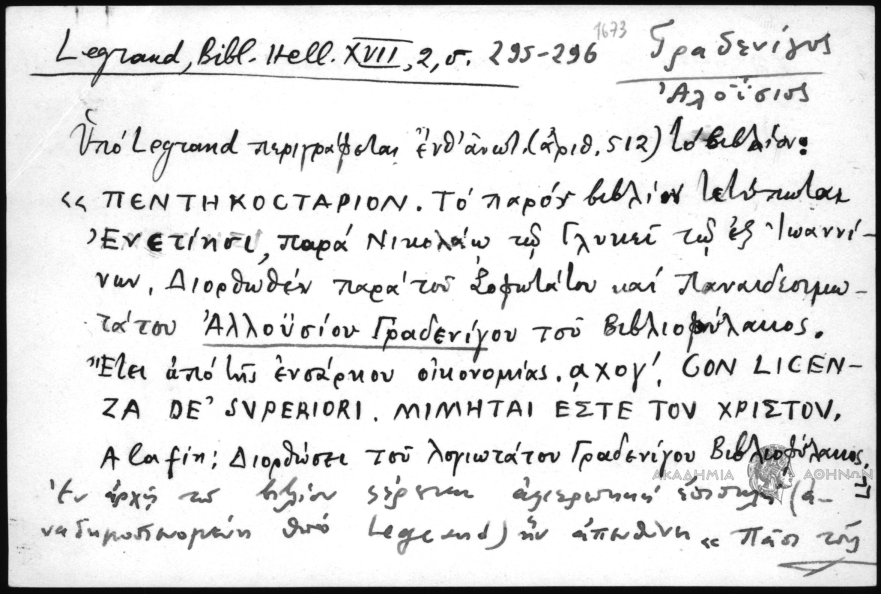 1673
Legrand, Bibl. Hell. XVII, 2, σ. 295-296 Γραδενίγος
Ἀλοΐσιος
Ὑπό Legrand περιγράφεται ἐνθ' ἀνωτ. (ἀριθ. 512) τό βιβλίον:
«ΠΕΝΤΗΚΟCΤΑΡΙΟΝ. Τό παρόν βιβλίον τετύπωται
Ἐνετίησι, παρά Νικολάῳ τῷ Γλυκεῖ τῷ ἐξ Ἰωαννί-
νων. Διορθωθέν παρά τοῦ Σοφωτάτου καί Παναιδεσιμω-
τάτου Ἀλλοϋσίου Γραδενίγου τοῦ Βιβλιοφύλακος.
Ἔτει ἀπό τῆς ἐνσάρκου οἰκονομίας. αχογ'. CON LICEN-
ZA DE' SVPERIORI. ΜΙΜΗΤΑΙ ΕΣΤΕ ΤΟΥ ΧΡΙΣΤΟΥ.
A la fin: Διορθώσει τοῦ λογιωτάτου Γραδενίγου Βιβλιοφύλακος.
ΑΚΑΔΗΜΙΑ ΑΘΗΝΩΝ
Ἐν ἀρχῇ τοῦ βιβλίου φέρεται ἀφιερωτική ἐπιστολή (ἀ-
ναδημοσιευομένη ὑπό Legrand) ἥν ἀπευθύνει «Πᾶσι τοῖς